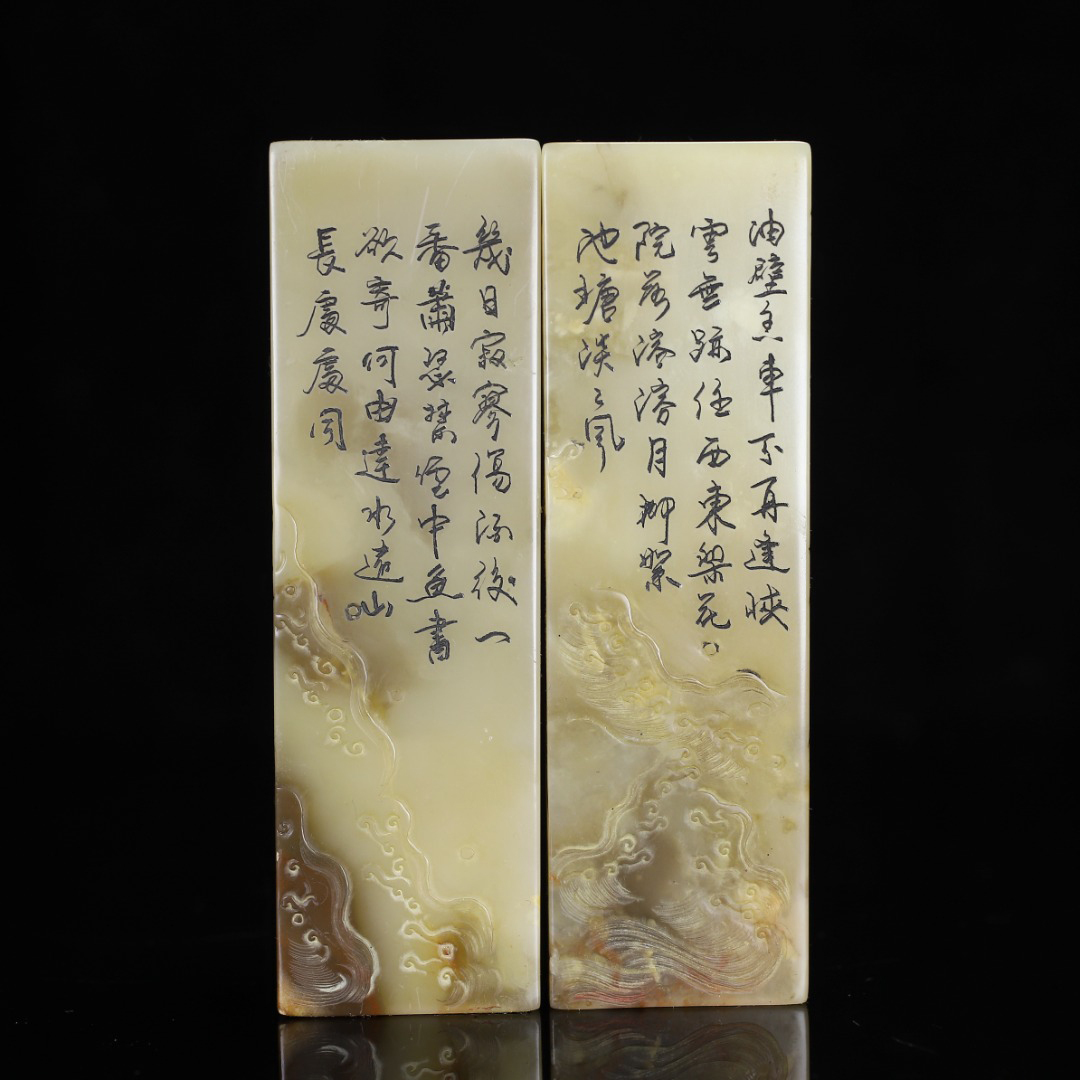 油壁香車不再逢峽
雲無跡任西東梨花
院落溶溶月柳絮
池塘淡々風
幾日寂寥傷酒後一
番蕭瑟禁煙中魚書
欲寄何由達水遠山
長處處同